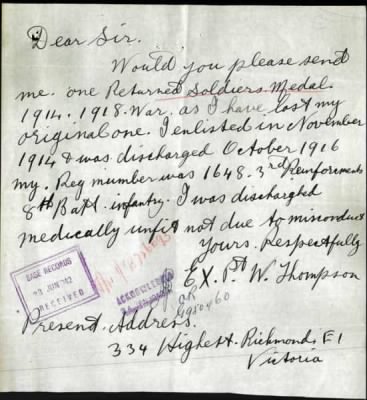 Dear Sir.
Would you please send
me. one Returned Soldiers Medal.
1914. 1918. War. as I have lost my
original one. I enlisted in November
1914 & was discharged October 1916
my. Reg number was 1648. 3rd Reinforcments
8th Batt. infantry. I was discharged
medically unfit not due to misconduct
Yours. Respectfully
EX. Pt W. Thompson
BASE RECORDS
23 JUN 1942
RECEIVED
Present. Address.
334 Highest. Richmond. E1
Victoria